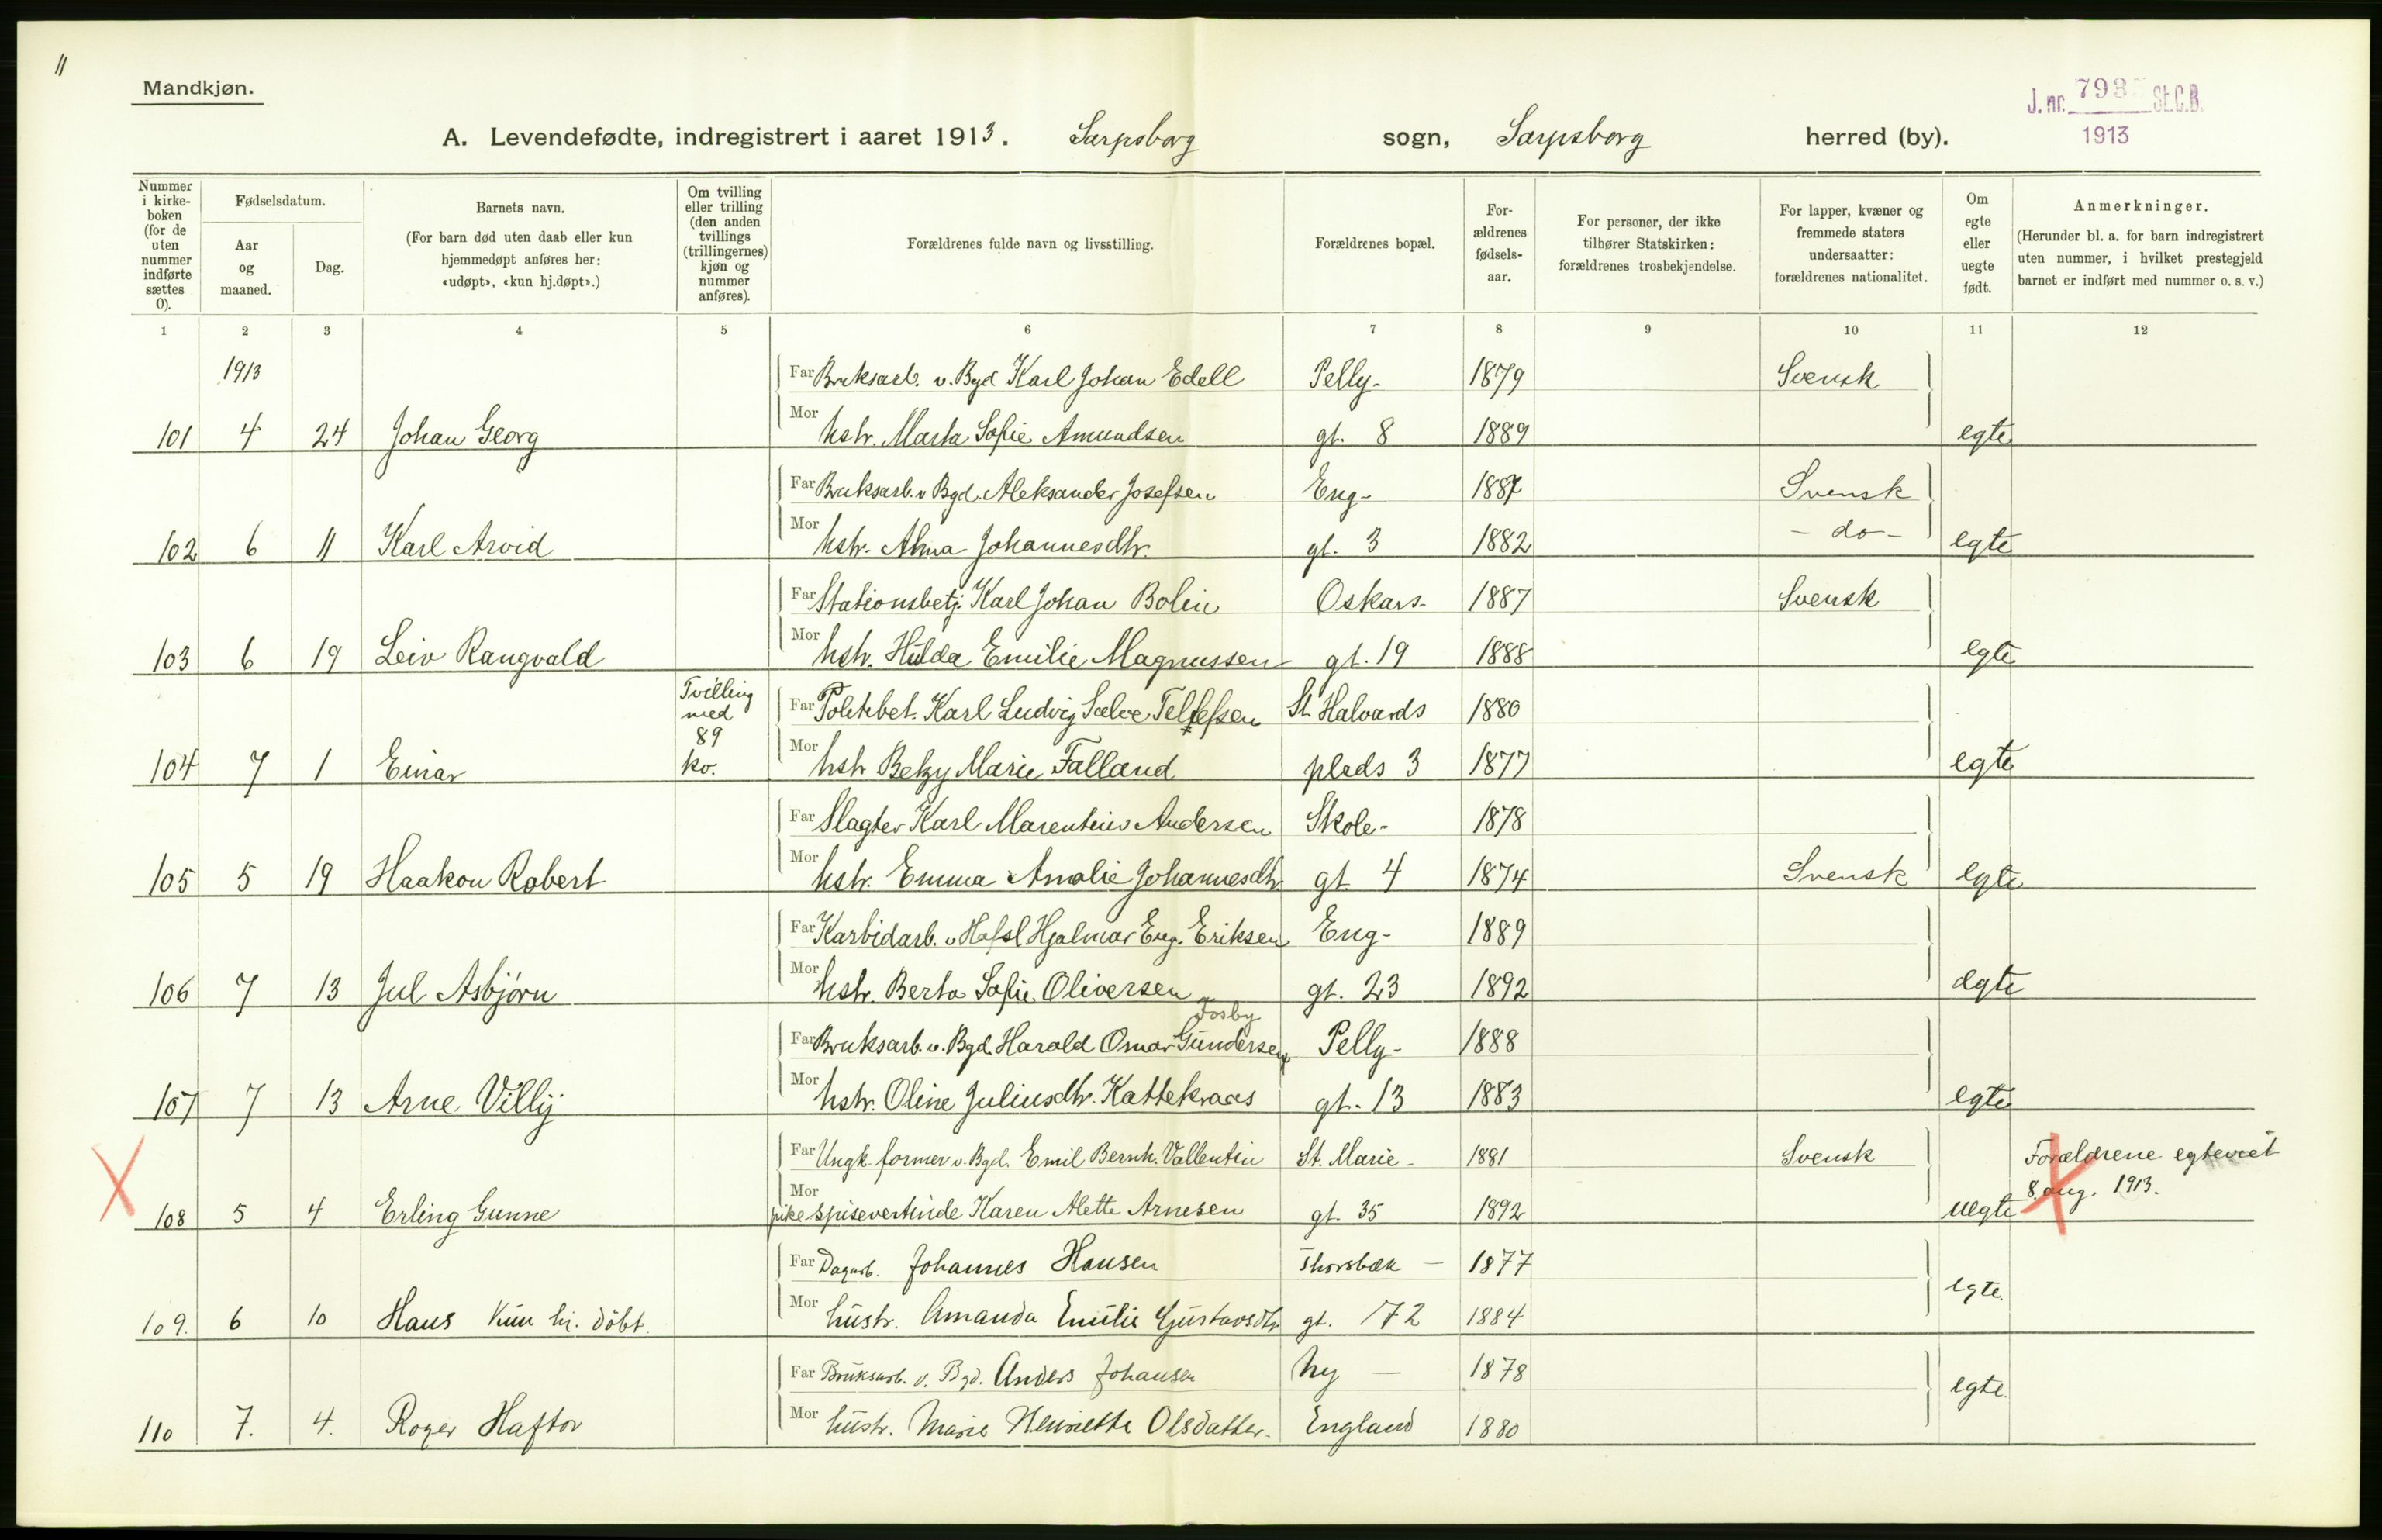 11
Mandkjøn.
J. nr. 793 St.C.B.
1913
A. Levendefødte, indregistrert i aaret 1913. Sarpsborg sogn, Sarpsborg herred (by).
Nummer i kirke-boken (for de uten nummer indførte sættes 0).
Fødselsdatum.
Aar og maaned.
Dag.
Barnets navn.
(For barn død uten daab eller kun hjemmedøpt anføres her: «udøpt», «kun hj.døpt».)
Om tvilling eller trilling (den anden tvillings (trillingernes) kjøn og nummer anføres).
Forældrenes fulde navn og livsstilling.
Forældrenes bopæl.
For-ældrenes fødsels-aar.
For personer, der ikke tilhører Statskirken: forældrenes trosbekjendelse.
For lapper, kvæner og fremmede staters undersaatter: forældrenes nationalitet.
Om egte eller uegte født.
Anmerkninger.
(Herunder bl. a. for barn indregistrert uten nummer, i hvilket prestegjeld barnet er indført med nummer o. s. v.)
1 2 3 4 5 6 7 8 9 10 11 12
1913
Far Bruksarb. v. Bgd Karl Johan Edell Pelly- 1879 Svensk
101 4 24 Johan Georg Mor hstr. Marta Sofie Amundsen gt. 8 1889 egte
Far Bruksarb. v Bgd. Aleksander Josefsen Eng- 1887 Svensk
102 6 11 Karl Arvid Mor hstr. Alma Johannesdtr. gt. 3 1882 - do - egte
Far Stationsbetj. Karl Johan Bolin Oskars- 1887 Svensk
103 6 19 Leiv Rangvald Mor hstr. Hilda Emilie Magnussen gt. 19 1888 egte
Tvilling med 89 kv.
Far Politibet. Karl Ludvig Sælve Tellefsen St. Halvards 1880
104 7 1 Einar Mor hstr Betzy Marie Falland plads 3 1877 egte
Far Slagter Karl Marentius Andersen Skole- 1878
105 5 19 Haakon Robert Mor hstr. Emma Amalie Johannesdtr. gt. 4 1874 Svensk egte
Far Karbidarb. v Hafsl Hjalmar Eug. Eriksen Eng- 1889
106 7 13 Jul Asbjørn Mor hstr. Berta Sofie Oliversen gt. 23 1892 egte
Fosby
Far Bruksarb. v. Bgd. Harald Omar Gundersen Pelly- 1888
107 7 13 Arne Villy Mor hstr. Oline Juliusdtr. Kattekraas gt. 13 1883 egte
Far Ungk. former v. Bgd. Emil Bernh. Vallentin St. Marie- 1881 Svensk Forældrene egteviet
108 5 4 Erling Gunne Mor pike spisevertinde Karen Alette Arnesen gt. 35 1892 uegte 8. aug. 1913.
Far Dagarb. Johannes Hansen Thorsbæk - 1877
109. 6 10 Hans Kun hj. döbt. Mor hustr. Amanda Emilie Gustavsdtr. gt. 172 1884 egte.
Far Bruksarb. v. Bgd. Anders Johansen Ny - 1878
110 7. 4. Roger Haftor Mor hustr. Marie Henriette Olsdatter. England 1880 egte.